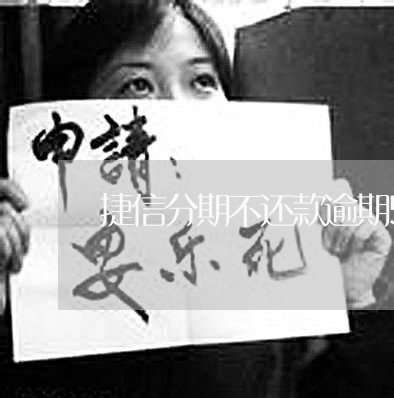 申請：
捷信分期不还款逾期
乐死